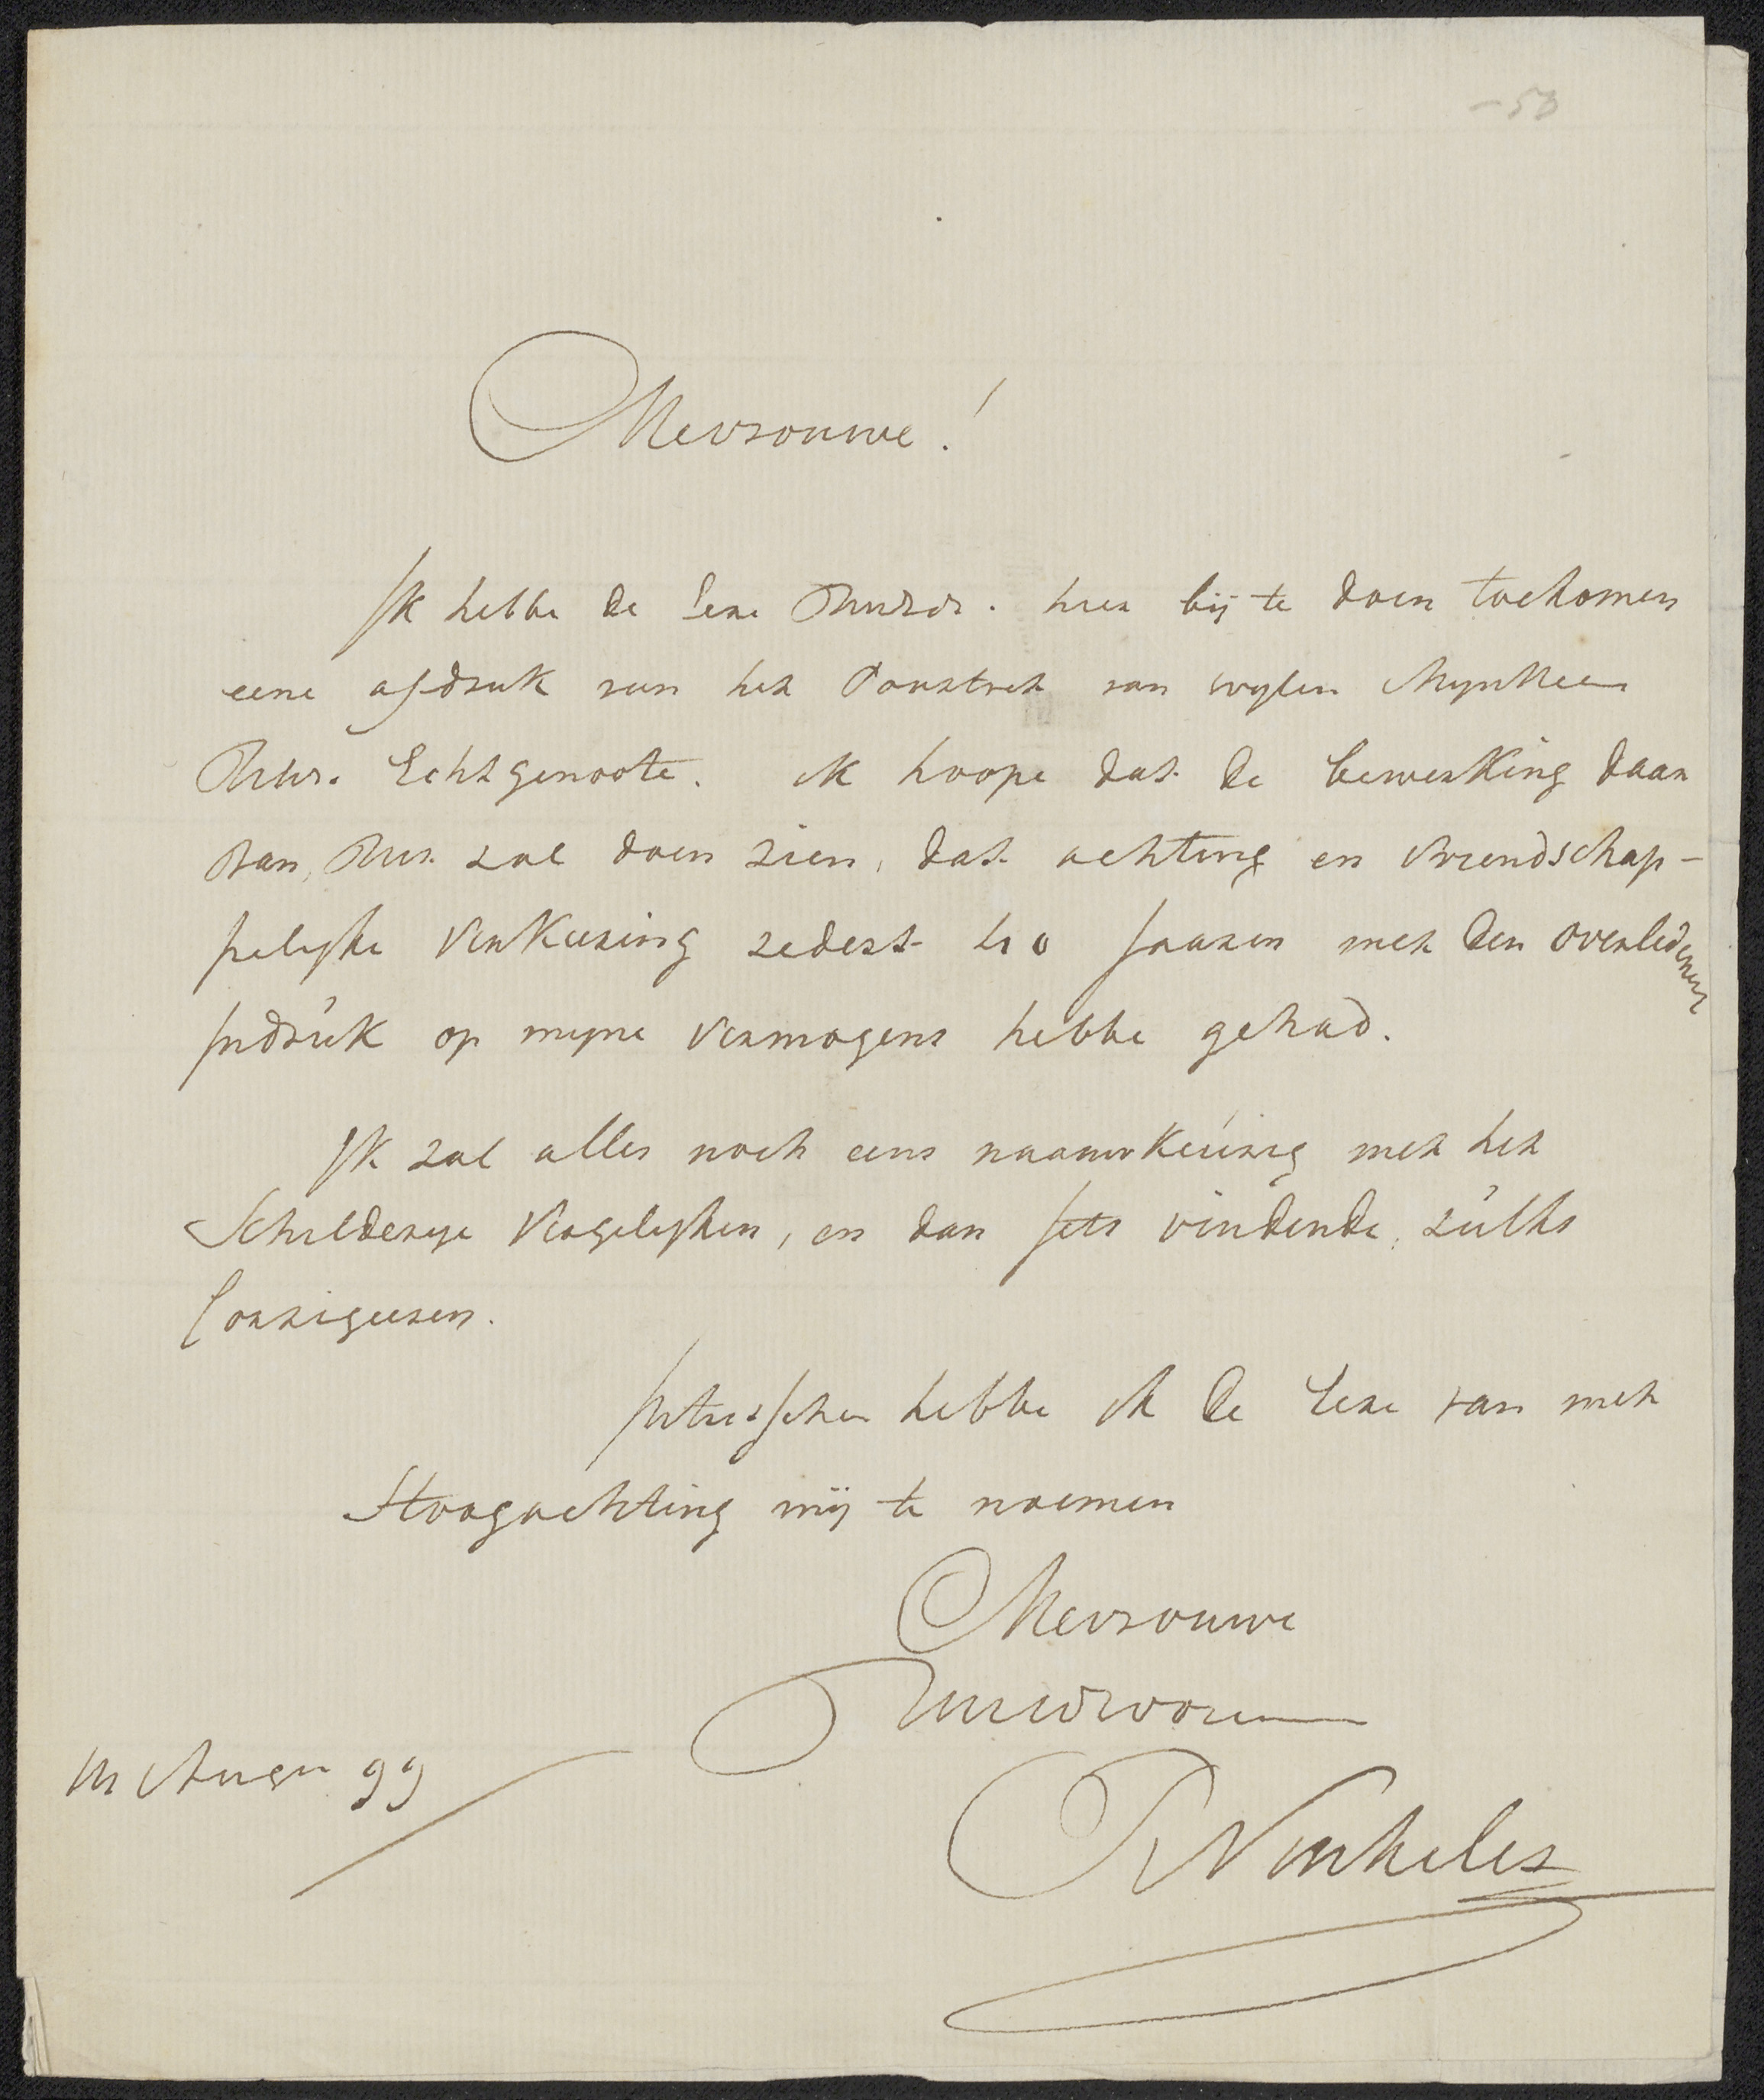 - 53
Mevrouwe!
Ik hebbe de Eere UwEd. hier bij te doen toekomen
eene afdruk van het Pourtret van wylen Mynheer
Uwe. Echtgenoote. ik hoope dat de bewerking daar
van, zal doen zien, dat achting en vriendschap-
pelyke verkeering sedert Jaaren met den overledenen
Indruk op myne vermogens hebbe gehad.
Ik zal alles noch eens naauwkeurig met het
Schilderye vergelyken, en dan Iets vindende, zulks
Corrigeeren.
Intusschen hebbe ik de Eere van met
Hoogachting mij te noemen
Mevrouwe
R Vinkeles
99